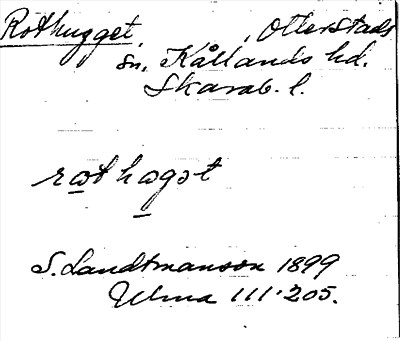 Rothugget, Otterstads
sn, Kållands hd.
Skarab. l.
rothogət
S. Landtmanson 1899
Ulma 111:205.